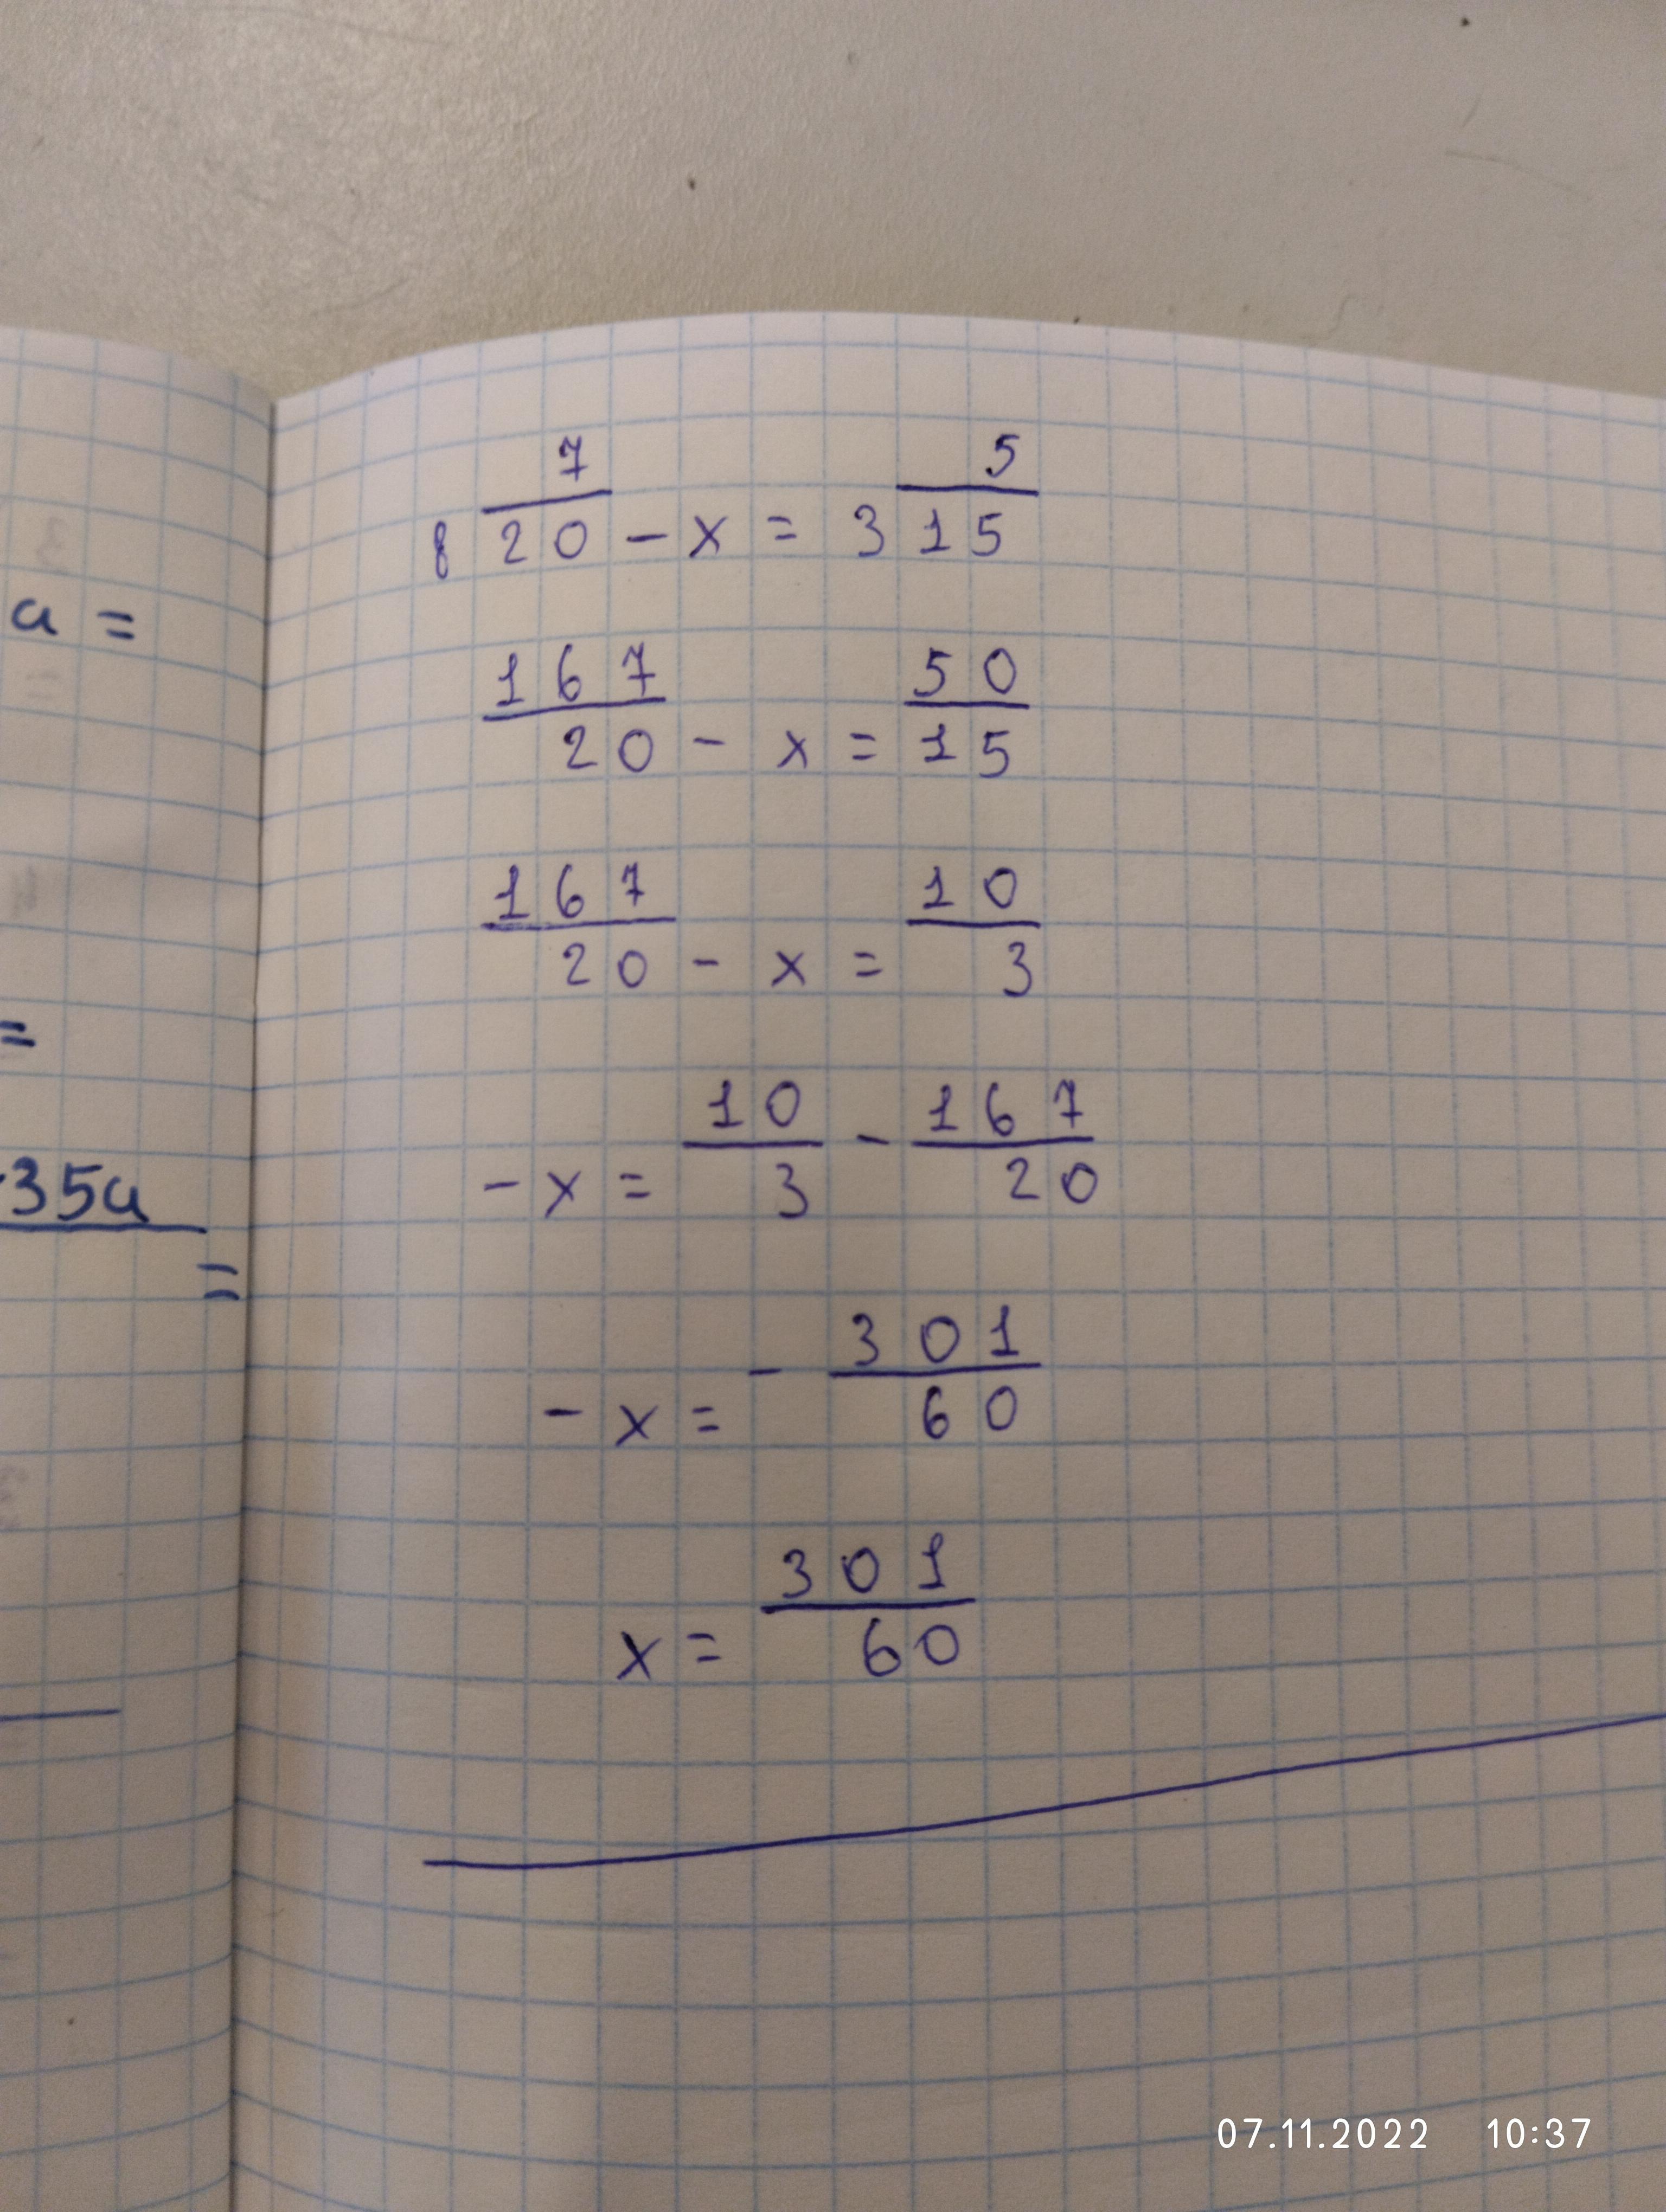 a =
=
35a
=
8 7/20 - x = 3 5/15
167/20 - x = 50/15
167/20 - x = 10/3
- x = 10/3 - 167/20
- x = - 301/60
x = 301/60
07.11.2022 10:37